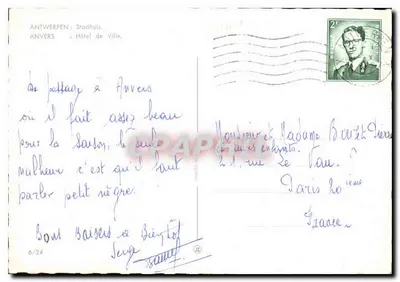 ANTWERPEN: Stadhuis.
ANVERS : Hôtel de Ville.
2F
De passage à Anvers
où il fait assez beau
pour la saison, le seul
malheur c'est qu'il faut
parler petit nègre.
Bons Baisers à Bientôt
Serge
6/24
Monsieur et Madame
et
rue Le Vau
Paris 20 ième
France
CARTE-POSTALE